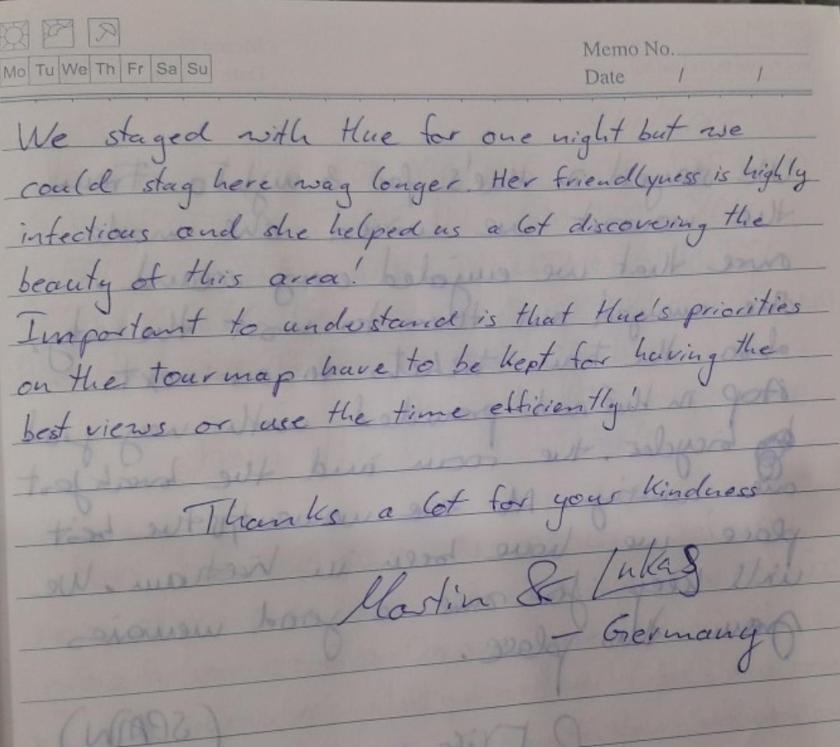 Mo Tu We Th Fr Sa Su
Memo No.
Date / /
We stayed with Hue for one night but we
could stay here way longer. Her friendlyness is highly
infectious and she helped us a lot discovering the
beauty of this area!
Important to understand is that Hue's priorities
on the tourmap have to be kept for having the
best views or use the time efficiently!
Thanks a lot for your kindness
Martin & Lukas
- Germany